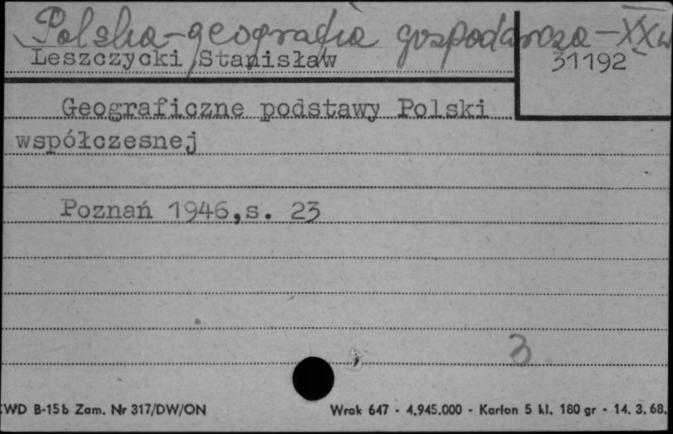 Polska-geografia gospodarcza-XXw
Leszczycki Stanisław
31192
Geograficzne podstawy Polski
współczesnej
Poznań 1946,s. 23
3
CWD B-15b Zam. Nr 317/DW/ON
Wrak 647 - 4.945.000 - Karton 5 kl. 180 gr - 14. 3. 68.